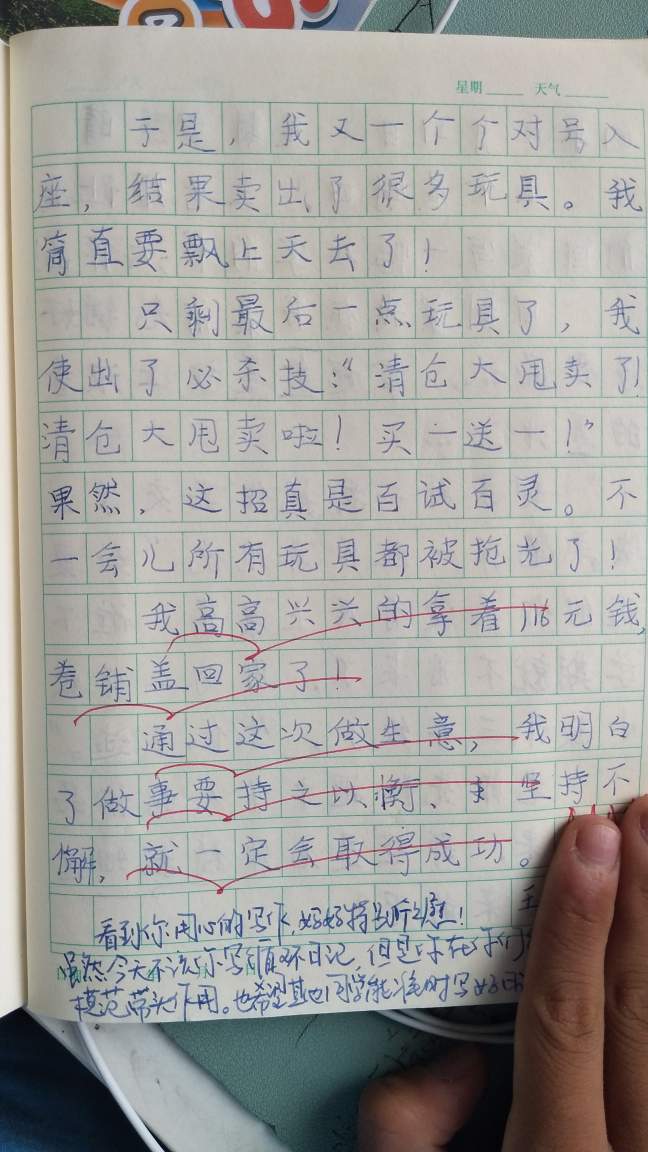 星期 天气
于是，我又一个个对号入
座，结果卖出了很多玩具。我
简直要飘上天去了！
只剩最后一点玩具了，我
使出了必杀技：“清仓大甩卖了！
清仓大甩卖啦！买一送一！”
果然，这招真是百试百灵。不
一会儿所有玩具都被抢光了！
我高高兴兴的拿着116元钱，
卷铺盖回家了！
通过这次做生意，我明白
了做事要持之以衡、坚持不
懈，就一定会取得成功。
看到你用心的写作，好好特别欣慰！
虽然今天不该你写循环日记，但是你在
模范带头作用。也希望其他同学能准时写好日